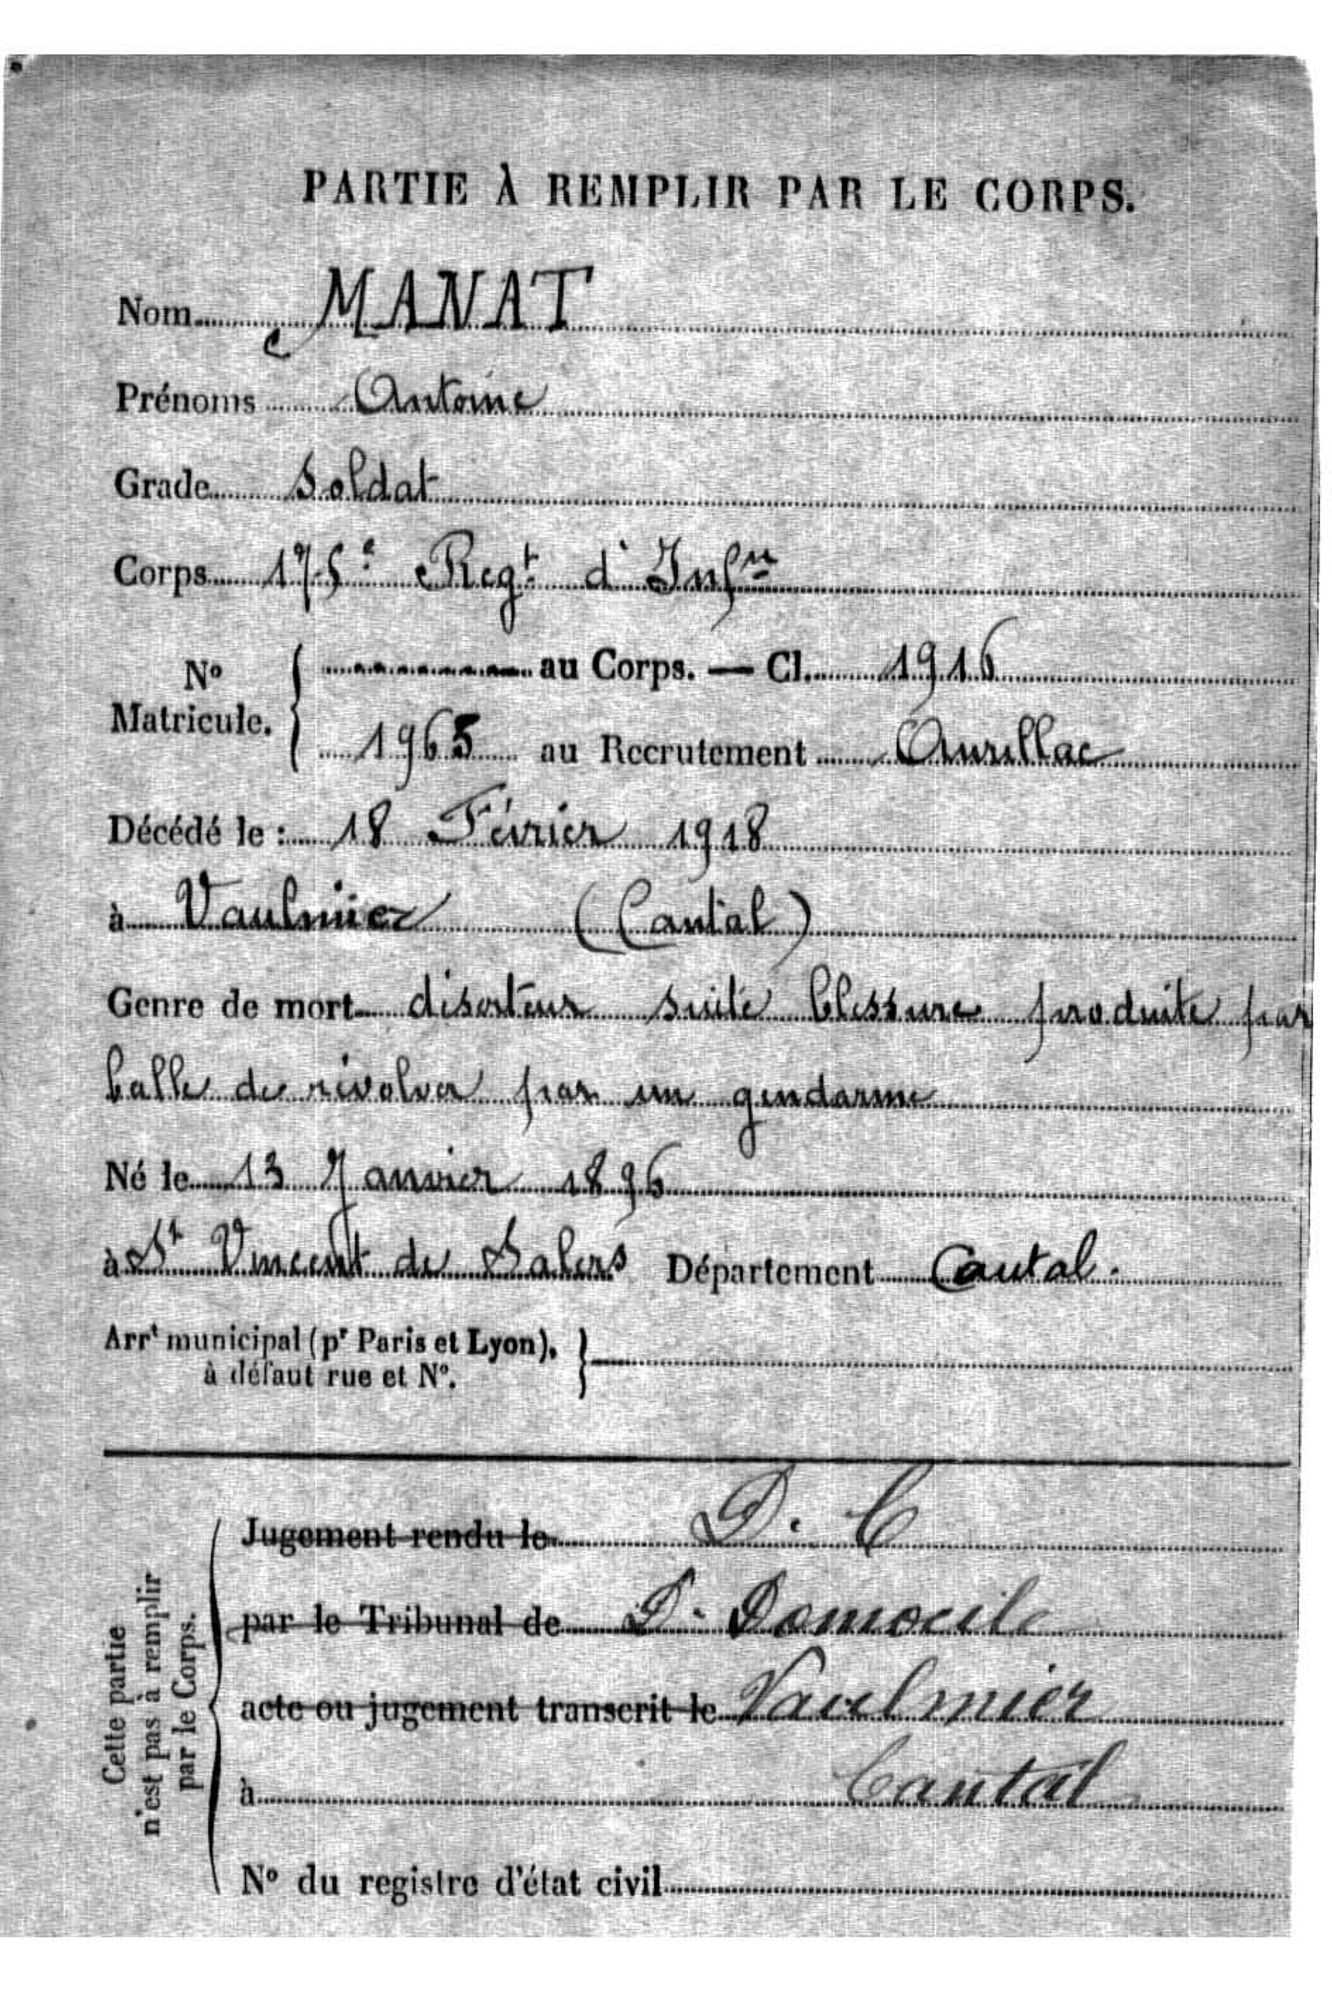 PARTIE À REMPLIR PAR LE CORPS.
Nom MANAT
Prénoms Antoine
Grade Soldat
Corps 175e Regt d'Infie
No Matricule. au Corps. — Cl. 1916
1965 au Recrutement Aurillac
Décédé le : 18 Février 1918
à Vaulmier (Cantal)
Genre de mort déserteur suite blessure produite par
balle de révolver par un gendarme
Né le 13 Janvier 1896
à St Vincent de Salers Département Cantal.
Arrt municipal (pr Paris et Lyon),
à défaut rue et No.
Cette partie
n'est pas à remplir
par le Corps.
Jugement rendu le D. C
par le Tribunal de D. Domocile
acte ou jugement transcrit le Vaulmier
à Cantal
No du registre d'état civil